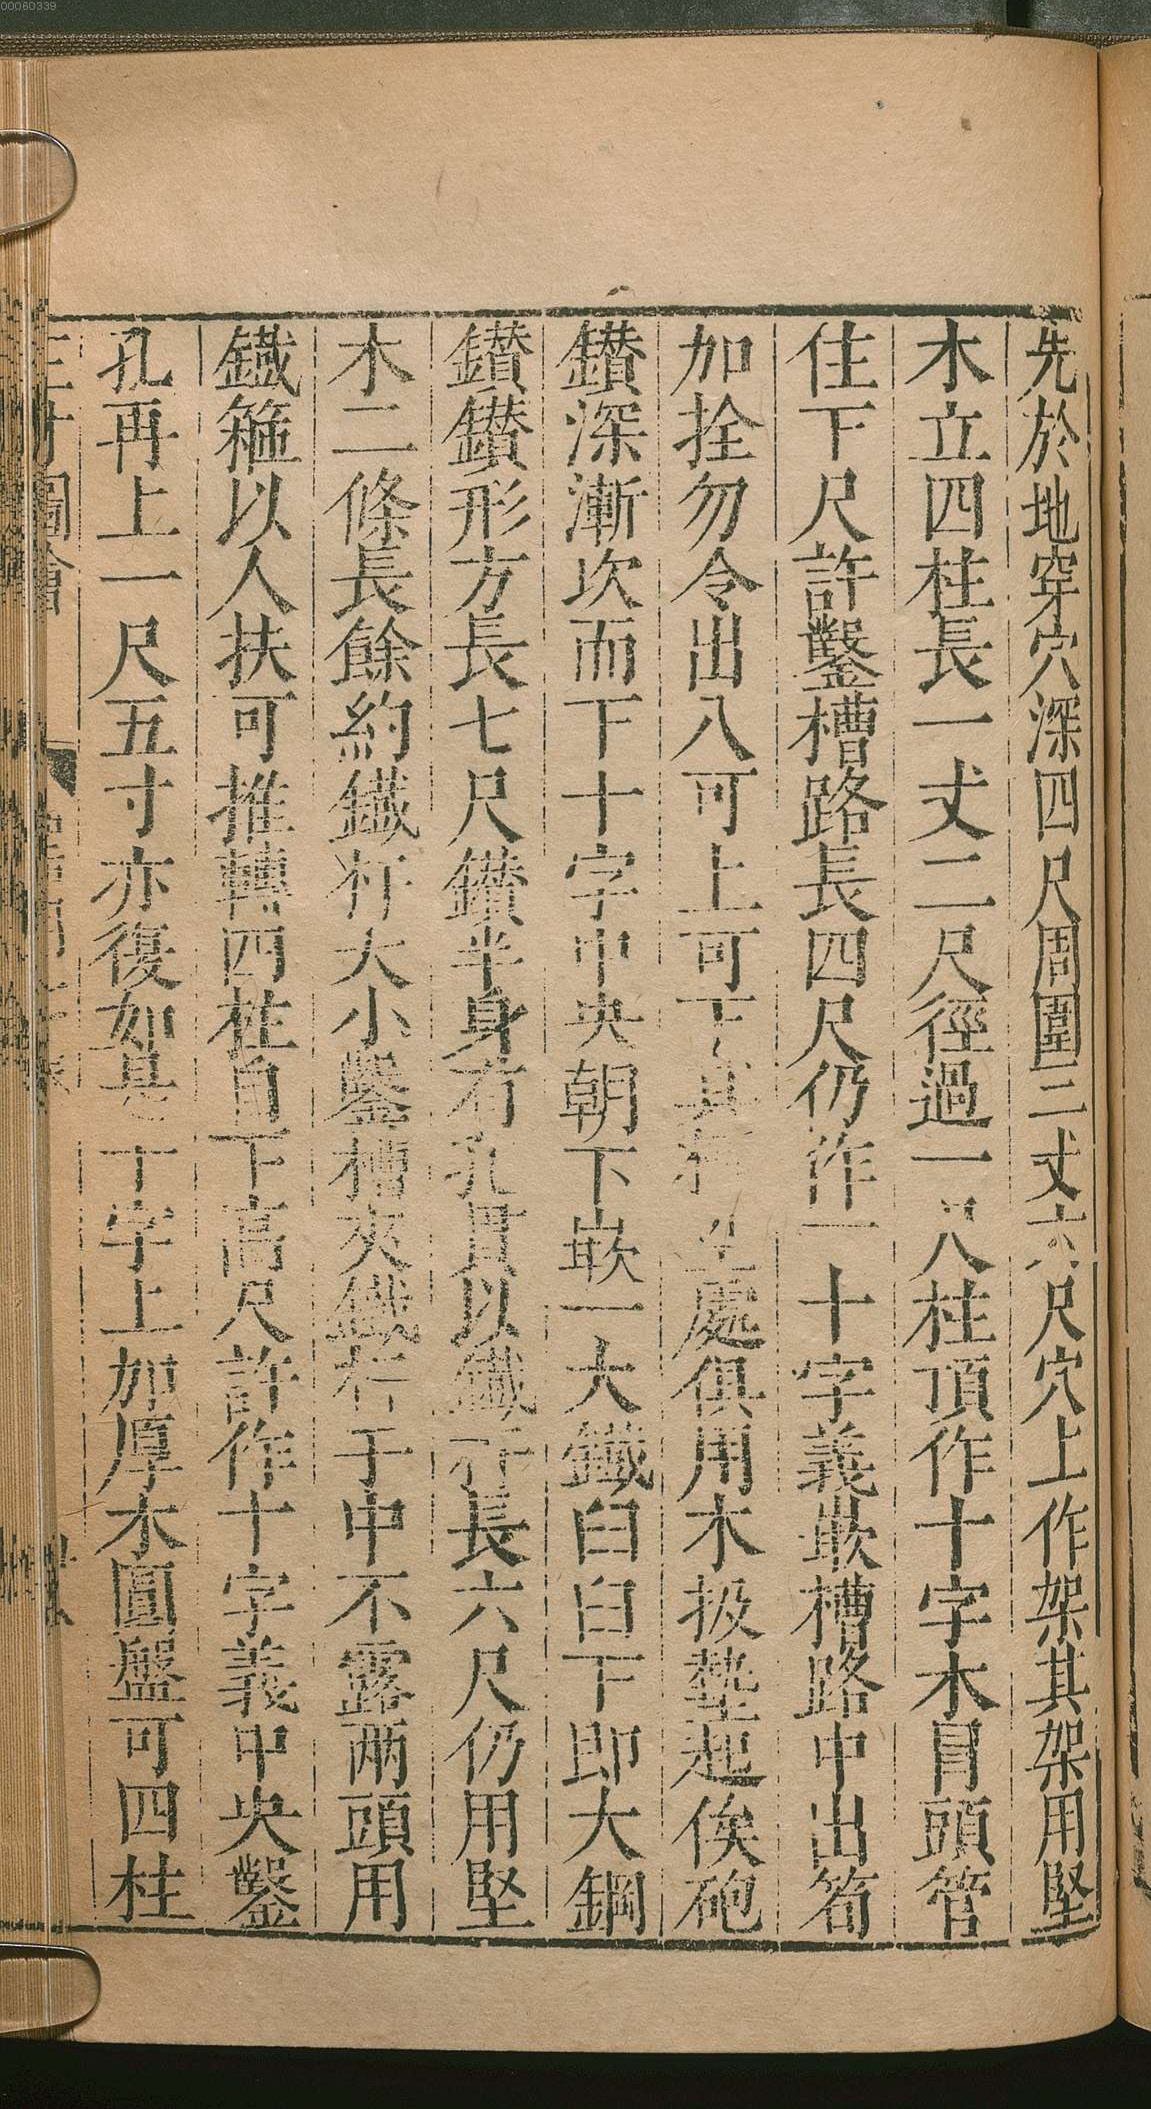 00060339
先於地穿穴深四尺周圍二丈六尺穴上作架其架用堅
木立四柱長一丈二尺徑過一尺八柱頂作十字木冒頭管
住下尺許鑿槽路長四尺仍作一十字義嵌槽路中出筍
加拴勿令出八可上可下其處俱用木扱墊起俟砲
鑽深漸次而下十字中央朝下嵌一大鐵臼臼下即大鋼
鑽鑽形方長七尺鑽半身有孔貫以鐵杆長六尺仍用堅
木二條長餘約鐵杆大小鑿槽夾鐵杆于中不露兩頭用
鐵箍以人扶可推轉四柱自下高尺許作十字義中央鑿
孔再上一尺五寸亦復如是十字上加厚木圓盤可四柱
三才圖會